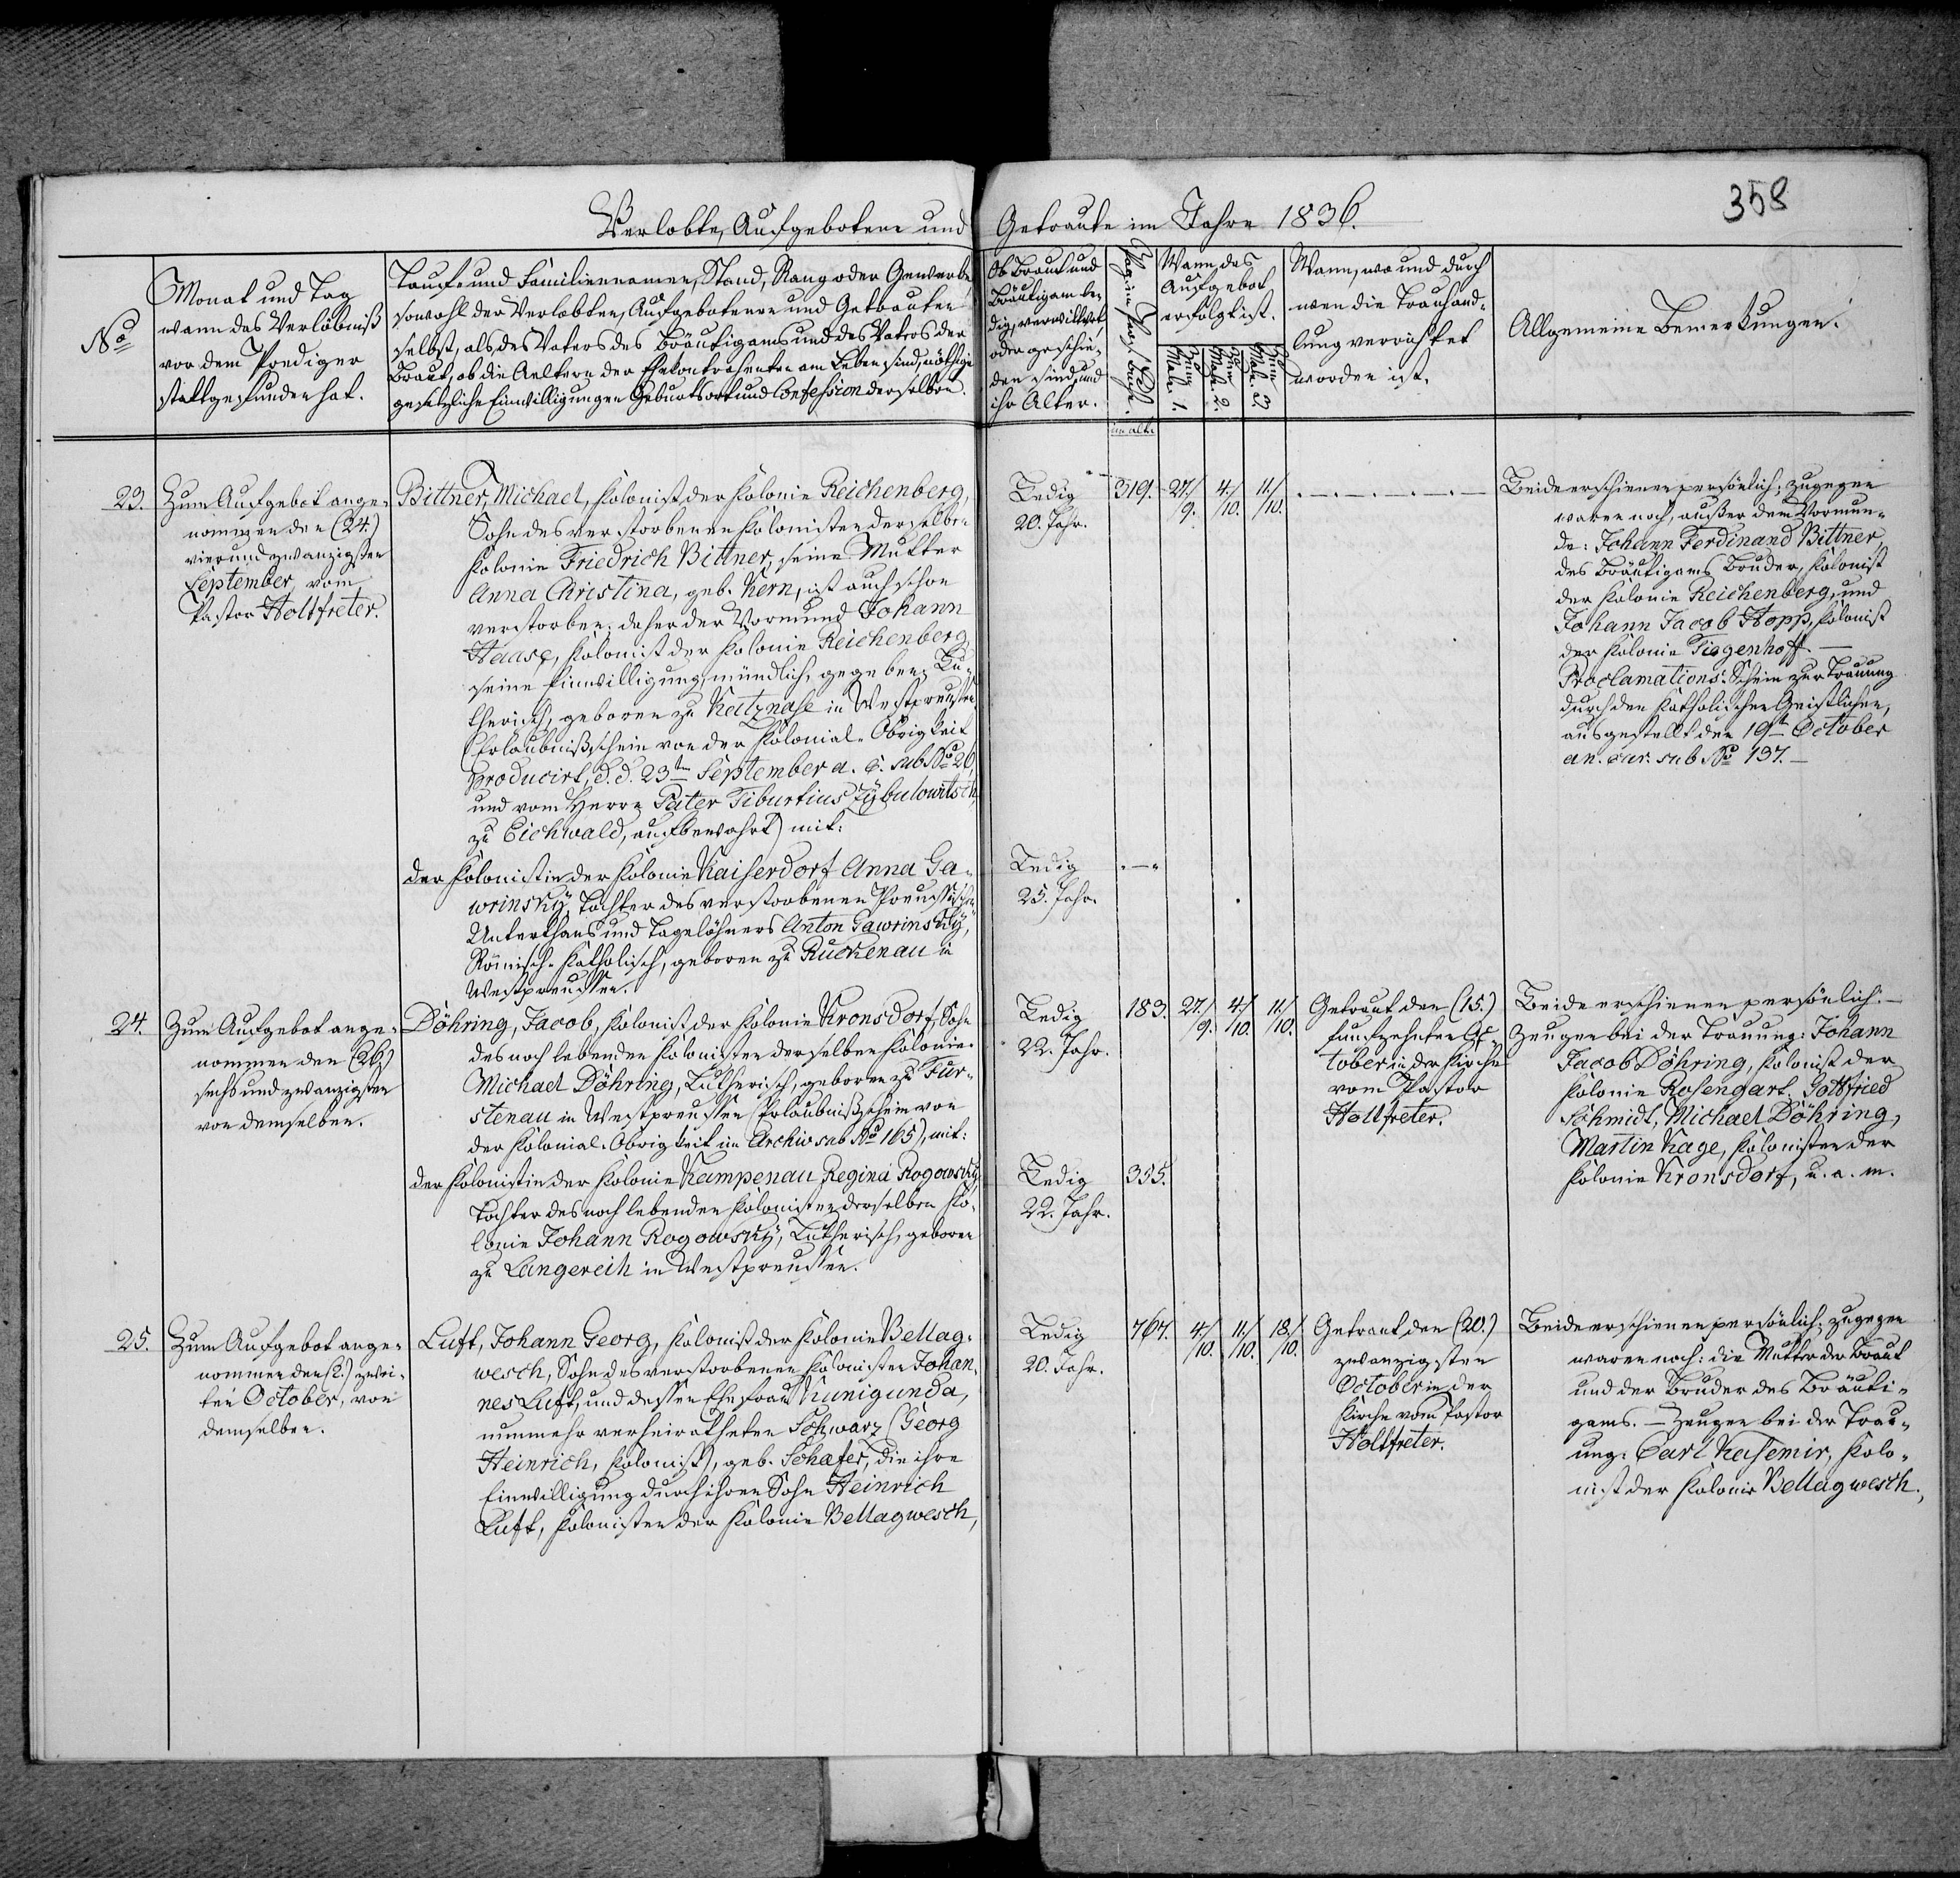 358
Verlobte, Aufgebotene und Getraute im Jahre 1836.
No
Monat und Tag
wann das Verlöbniß
vor dem Prediger
stattgefunden hat.
Tauf- und Familiennamen, Stand, Rang oder Gewerbe
sowohl der Verlobten, Aufgebotenen und Getrauten
selbst, als des Vaters des Bräutigams und des Vaters der
Braut, ob die Aeltern der Ehekontrahenten am Leben sind, nöthige
gesetzliche Einwilligungen Geburtsort und Confession derselben.
Ob Braut und
Bräutigam le-
dig, verwittwet
oder geschie-
den sind, und
ihr Alter.
Wann das
Aufgebot
erfolgt ist.
Zum
Male. 1.
Zum
Male. 2.
Zum
Male. 3.
Wann, wo und durch
wen die Trauhand-
lung verrichtet
worden ist.
Allgemeine Bemerkungen.
23.
Zum Aufgebot ange-
nommen den (24.)
vierundzwanzigsten
September, vom
Pastor Holtfreter.
Bittner, Michael, Kolonist der Kolonie Reichenberg,
Sohn des verstorbenen Kolonisten derselben
Kolonie Friedrich Bittner, seine Mutter
Anna Christina, geb. Kern, ist auch schon
verstorben; daher der Vormund Johann
Haase, Kolonist der Kolonie Reichenberg
seine Einwilligung, mündlich, gegeben; Lu-
therisch, geboren zu Katznase in Westpreußen,
(Erlaubnißschein von der Kolonial-Obrigkeit
producirt, d.d. 23ten September a. c. sub No 26,
und vom Herrn Pater Tiburtius Zybulowitsch,
zu Eichwald, aufbewahrt) mit:
der Kolonistin der Kolonie Kaiserdorf Anna Ga-
wrinsky, Tochter des verstorbenen Preussischen
Unterthans und Tagelöhners Anton Gawrinsky,
Römisch-Katholisch, geboren zu Rückenau in
Westpreussen.
Ledig
20. Jahr.
319.
27./9.
4./10.
11./10.
Ledig
25. Jahr.
Beide erschienen persönlich; zugegen
waren noch, außer dem Vormun-
de: Johann Ferdinand Bittner,
des Bräutigams Bruder, Kolonist
der Kolonie Reichenberg, und
Johann Jacob Hopp, Kolonist
der Kolonie Tiegenhoff. —
Proclamations-Schein zur Trauung
durch den Katholischen Geistlichen,
ausgestellt den 19ten October
an. cur. sub No 197. —
24.
Zum Aufgebot ange-
nommen den (26)
sechs und zwanzigsten
von demselben.
Döhring, Jacob, Kolonist der Kolonie Kronsdorf, Sohn
des noch lebenden Kolonisten derselben Kolonie
Michael Döhring, Lutherisch, geboren zu Für-
stenau in Westpreussen (Erlaubnißschein von
der Kolonial-Obrigkeit im Archiv sub No 165), mit:
der Kolonistin der Kolonie Kampenau Regina Rogowsky,
Tochter des noch lebenden Kolonisten derselben Ko-
lonie Johann Rogowsky, Lutherisch, geboren
zu Langereih in Westpreussen.
Ledig
22. Jahr.
183.
27./9.
4./10.
11./10.
Ledig
22. Jahr.
355.
Getraut den (15.)
fünfzehnten Oc-
tober in der Kirche
vom Pastor
Holtfreter.
Beide erschienen persönlich. —
Zeugen bei der Trauung: Johann
Jacob Döhring, Kolonist der
Kolonie Rosengart. Gottfried
Schmidt, Michael Döhring,
Martin Kage, Kolonisten der
Kolonie Kronsdorf, u. a. m.
25.
Zum Aufgebot ange-
nommen den (2.) zwei-
ten October, von
demselben.
Luft, Johann Georg, Kolonist der Kolonie Bellag-
wesch, Sohn des verstorbenen Kolonisten Johan-
nes Luft, und dessen Ehefrau Kunigunda,
nunmehr verheiratheten Schwarz (Georg
Heinrich, Kolonist), geb. Schäfer, die ihre
Einwilligung durch ihren Sohn Heinrich
Luft, Kolonisten der Kolonie Bellagwesch,
Ledig
20. Jahr.
767.
4./10.
11./10.
18./10.
Getraut den (20.)
zwanzigsten
October in der
Kirche vom Pastor
Holtfreter.
Beide erschienen persönlich; zugegen
waren noch: die Mutter der Braut
und der Bruder des Bräuti-
gams. — Zeugen bei der Trau-
ung: Carl Kasemir, Kolo-
nist der Kolonie Bellagwesch,